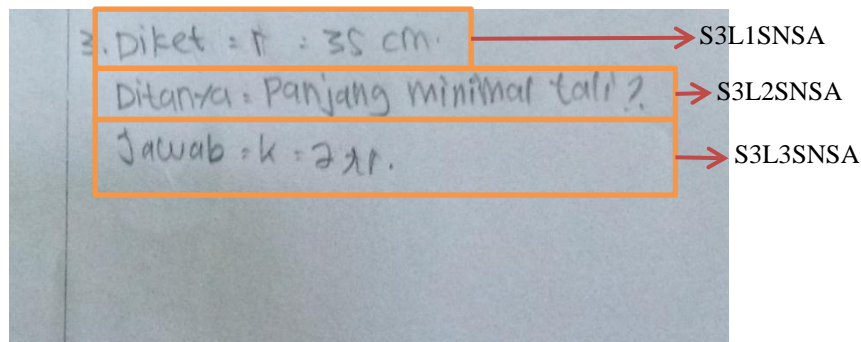 3. Diket = r = 35 cm. S3L1SNSA
Ditanya = Panjang minimal tali? S3L2SNSA
Jawab = k = 2πr. S3L3SNSA